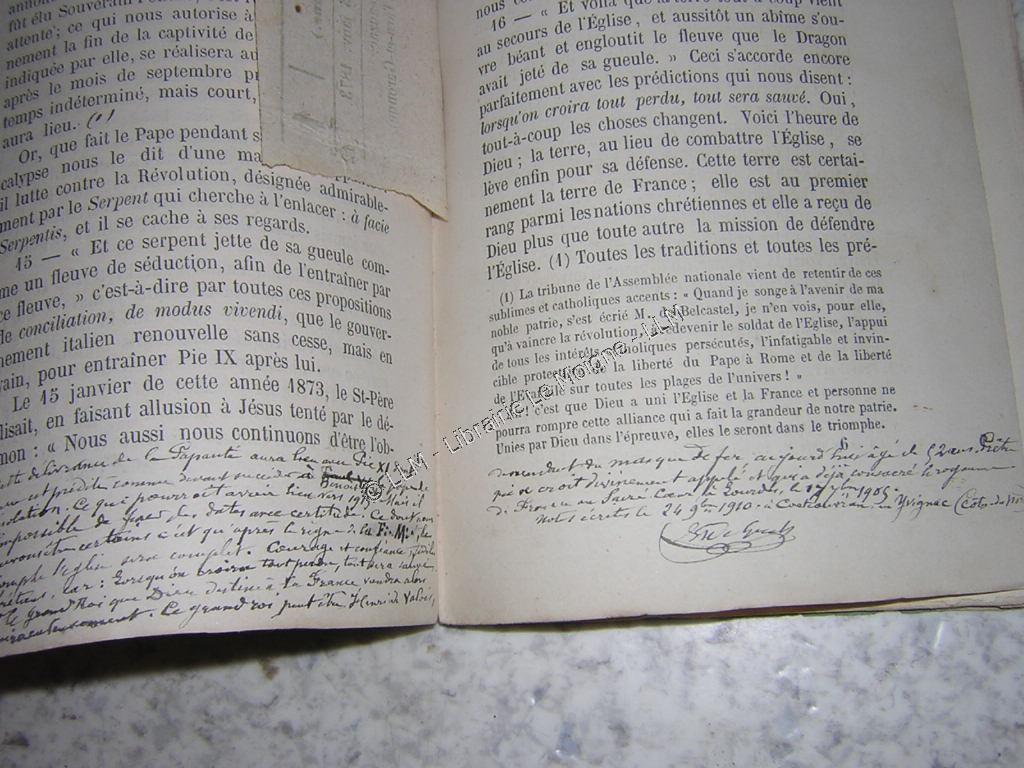 fût élu Souverain
attente ; ce qui nous autorise à
nement la fin de la captivité de
indiquée par elle, se réalisera au
après le mois de septembre
temps indéterminé, mais court,
aura lieu. (1)
Or, que fait le Pape pendant
calypse nous le dit d'une
il lutte contre la Révolution, désignée admirable-
ment par le Serpent qui cherche à l'enlacer : à facie
Serpentis, et il se cache à ses regards.
15 — « Et ce serpent jette de sa gueule com-
me un fleuve de séduction, afin de l'entraîner par
ce fleuve, » c'est-à-dire par toutes ces propositions
de conciliation, de modus vivendi, que le gouver-
nement italien renouvelle sans cesse, mais en
vain, pour entraîner Pie IX après lui.
Le 15 janvier de cette année 1873, le St-Père
disait, en faisant allusion à Jésus tenté par le dé-
mon : « Nous aussi nous continuons d'être l'ob-
de la Papauté aura lieu avec Pie XI
prédit comme devant succéder à
Ce que pourrait avoir lieu vers
impossible de fixer les dates avec certitude. Ce dont nous
certains c'est qu'après le règne de la F∴ M∴, le
l'Eglise sera complet. Courage et confiance,
car : Lorsqu'on croira tout perdu, tout sera sauvé
le grand Roi que Dieu destine à la France viendra alors
miraculeusement. Ce grand roi, peut être Henri de Valois,
16 — « Et voilà que la terre tout à coup vient
au secours de l'Église, et aussitôt un abîme s'ou-
vre béant et engloutit le fleuve que le Dragon
avait jeté de sa gueule. » Ceci s'accorde encore
parfaitement avec les prédictions qui nous disent :
lorsqu'on croira tout perdu, tout sera sauvé. Oui,
tout-à-coup les choses changent. Voici l'heure de
Dieu ; la terre, au lieu de combattre l'Église, se
lève enfin pour sa défense. Cette terre est certai-
nement la terre de France ; elle est au premier
rang parmi les nations chrétiennes et elle a reçu de
Dieu plus que toute autre la mission de défendre
l'Église. (1) Toutes les traditions et toutes les pré-
(1) La tribune de l'Assemblée nationale vient de retentir de ces
sublimes et catholiques accents : « Quand je songe à l'avenir de ma
noble patrie, s'est écrié M. de Belcastel, je n'en vois, pour elle,
qu'à vaincre la révolution, à redevenir le soldat de l'Eglise, l'appui
de tous les intérêts catholiques persécutés, l'infatigable et invin-
cible protecteur de la liberté du Pape à Rome et de la liberté
de l'Evangile sur toutes les plages de l'univers ! »
c'est que Dieu a uni l'Eglise et la France et personne ne
pourra rompre cette alliance qui a fait la grandeur de notre patrie.
Unies par Dieu dans l'épreuve, elles le seront dans le triomphe.
descendant du masque de fer aujourd'hui âgé de 52 ans
qui se croit divinement appelé et qui a déjà consacré le royaume
de France au Sacré Coeur à Lourdes, le
Notes écrites le 24 9bre 1910 - à en Yvignac (Côtes du Nord)
© LLM - Librairie Le Moigne - LLM